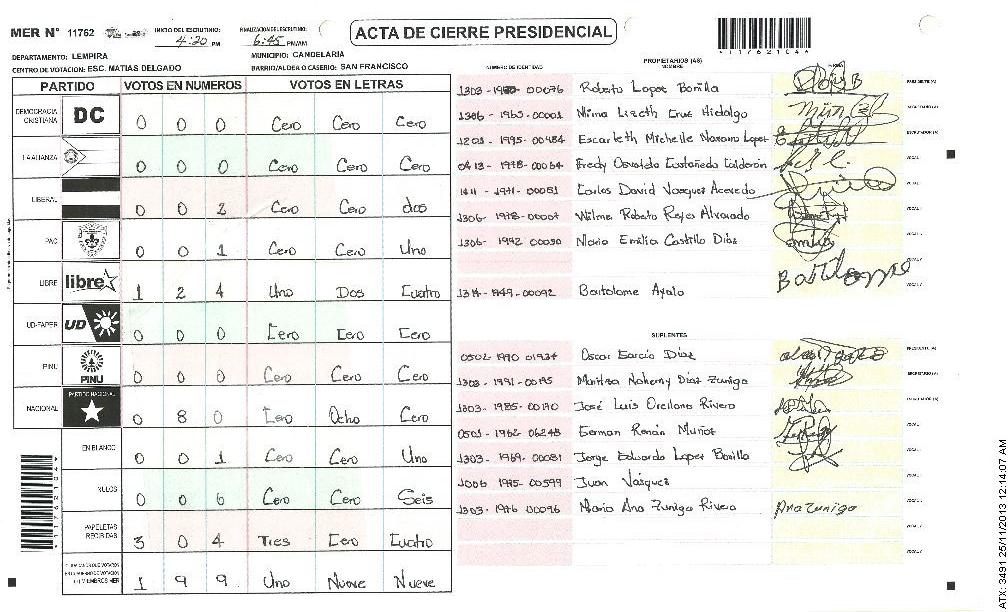 MER N° 11762
INICIO DEL ESCRUTINIO: 4:20 PM
FINALIZACION DEL ESCRUTINIO: 6:45 PM/AM
ACTA DE CIERRE PRESIDENCIAL
11762104
DEPARTAMENTO: LEMPIRA
MUNICIPIO: CANDELARIA
CENTRO DE VOTACION: ESC. MATIAS DELGADO
BARRIO/ALDEA O CASERIO: SAN FRANCISCO
PARTIDO VOTOS EN NUMEROS VOTOS EN LETRAS
DEMOCRACIA CRISTIANA DC 0 0 0 Cero Cero Cero
LA ALIANZA 0 0 0 Cero Cero Cero
LIBERAL 0 0 2 Cero Cero dos
PAC 0 0 1 Cero Cero Uno
LIBRE libre 1 2 4 Uno Dos Cuatro
UD-FAPER UD 0 0 0 Cero Cero Cero
PINU PINU 0 0 0 Cero Cero Cero
NACIONAL PARTIDO NACIONAL 0 8 0 Cero Ocho Cero
EN BLANCO 0 0 1 Cero Cero Uno
NULOS 0 0 6 Cero Cero Seis
PAPELETAS RECIBIDAS 3 0 4 Tres Cero Cuatro
MIEMBROS MER 1 9 9 Uno Nueve Nueve
NUMERO DE IDENTIDAD
PROPIETARIOS (AS)
NOMBRE
FIRMA
Roberto Lopez Bonilla PRESIDENTE (A)
1306-1963-00001 Mirna Lizeth Cruz Hidalgo SECRETARIO (A)
1201-1995-00484 Escarleth Michelle Navarro Lopez ESCRUTADOR (A)
0413-1978-00064 Fredy Osvaldo Castañeda Calderón
Carlos David Vasquez Acevedo
1306-1978-00007 Wilmer Roberto Reyes Alvarado
1306-1992 00050 Maria Emilia Castillo Diaz
Bartolome Ayala
SUPLENTES
0502 1990 01934 Oscar Garcia Diaz PRESIDENTE (A)
1303-1991-00195 Maritza Nohemy Diaz Zuniga SECRETARIO (A)
1303-1985-00170 José Luis Orellana Rivera
0501-1962 06248 German Renán Muñoz
1303-1969-00081 Jorge Eduardo Lopez Bonilla
1006 1985-00599 Juan Vásquez
1303-1976 00096 Maria Ana Zuniga Rivera Ana Zuniga
ATX: 3491 25/11/2013 12:14:07 AM